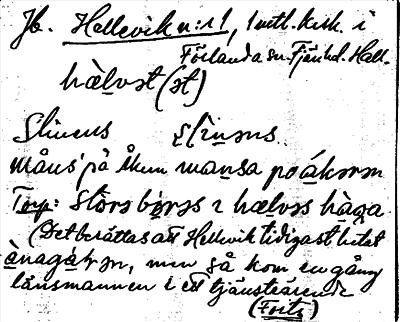 Jb. Hellevik n:r 1, 1 mtl. krk. i
Förlanda sn. Fjäre hd. Hall.
hælvət (ət)
Slinens slìnəns.
Måns' på Åkern mansa po ákərən
Torp: Störs börəs i hælvəs hàga
(Det berättas att Hellevik tidigast hetat
ànagàkən, men så kom en gång
länsmannen i ett tjänsteärende
(Forts)